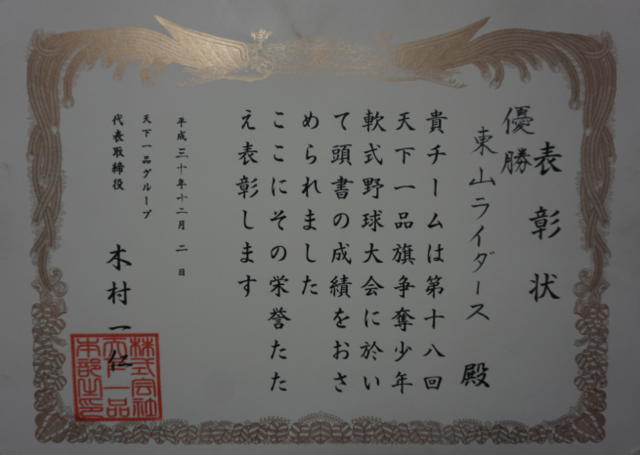 表彰状
優勝
東山ライダース 殿
貴チームは第十八回
天下一品旗争奪少年
軟式野球大会に於い
て頭書の成績をおさ
められました
ここにその栄誉をたた
え表彰します
平成三十年十二月二日
天下一品グループ
代表取締役
木村一仁
株式会社
天下一品
本部之印